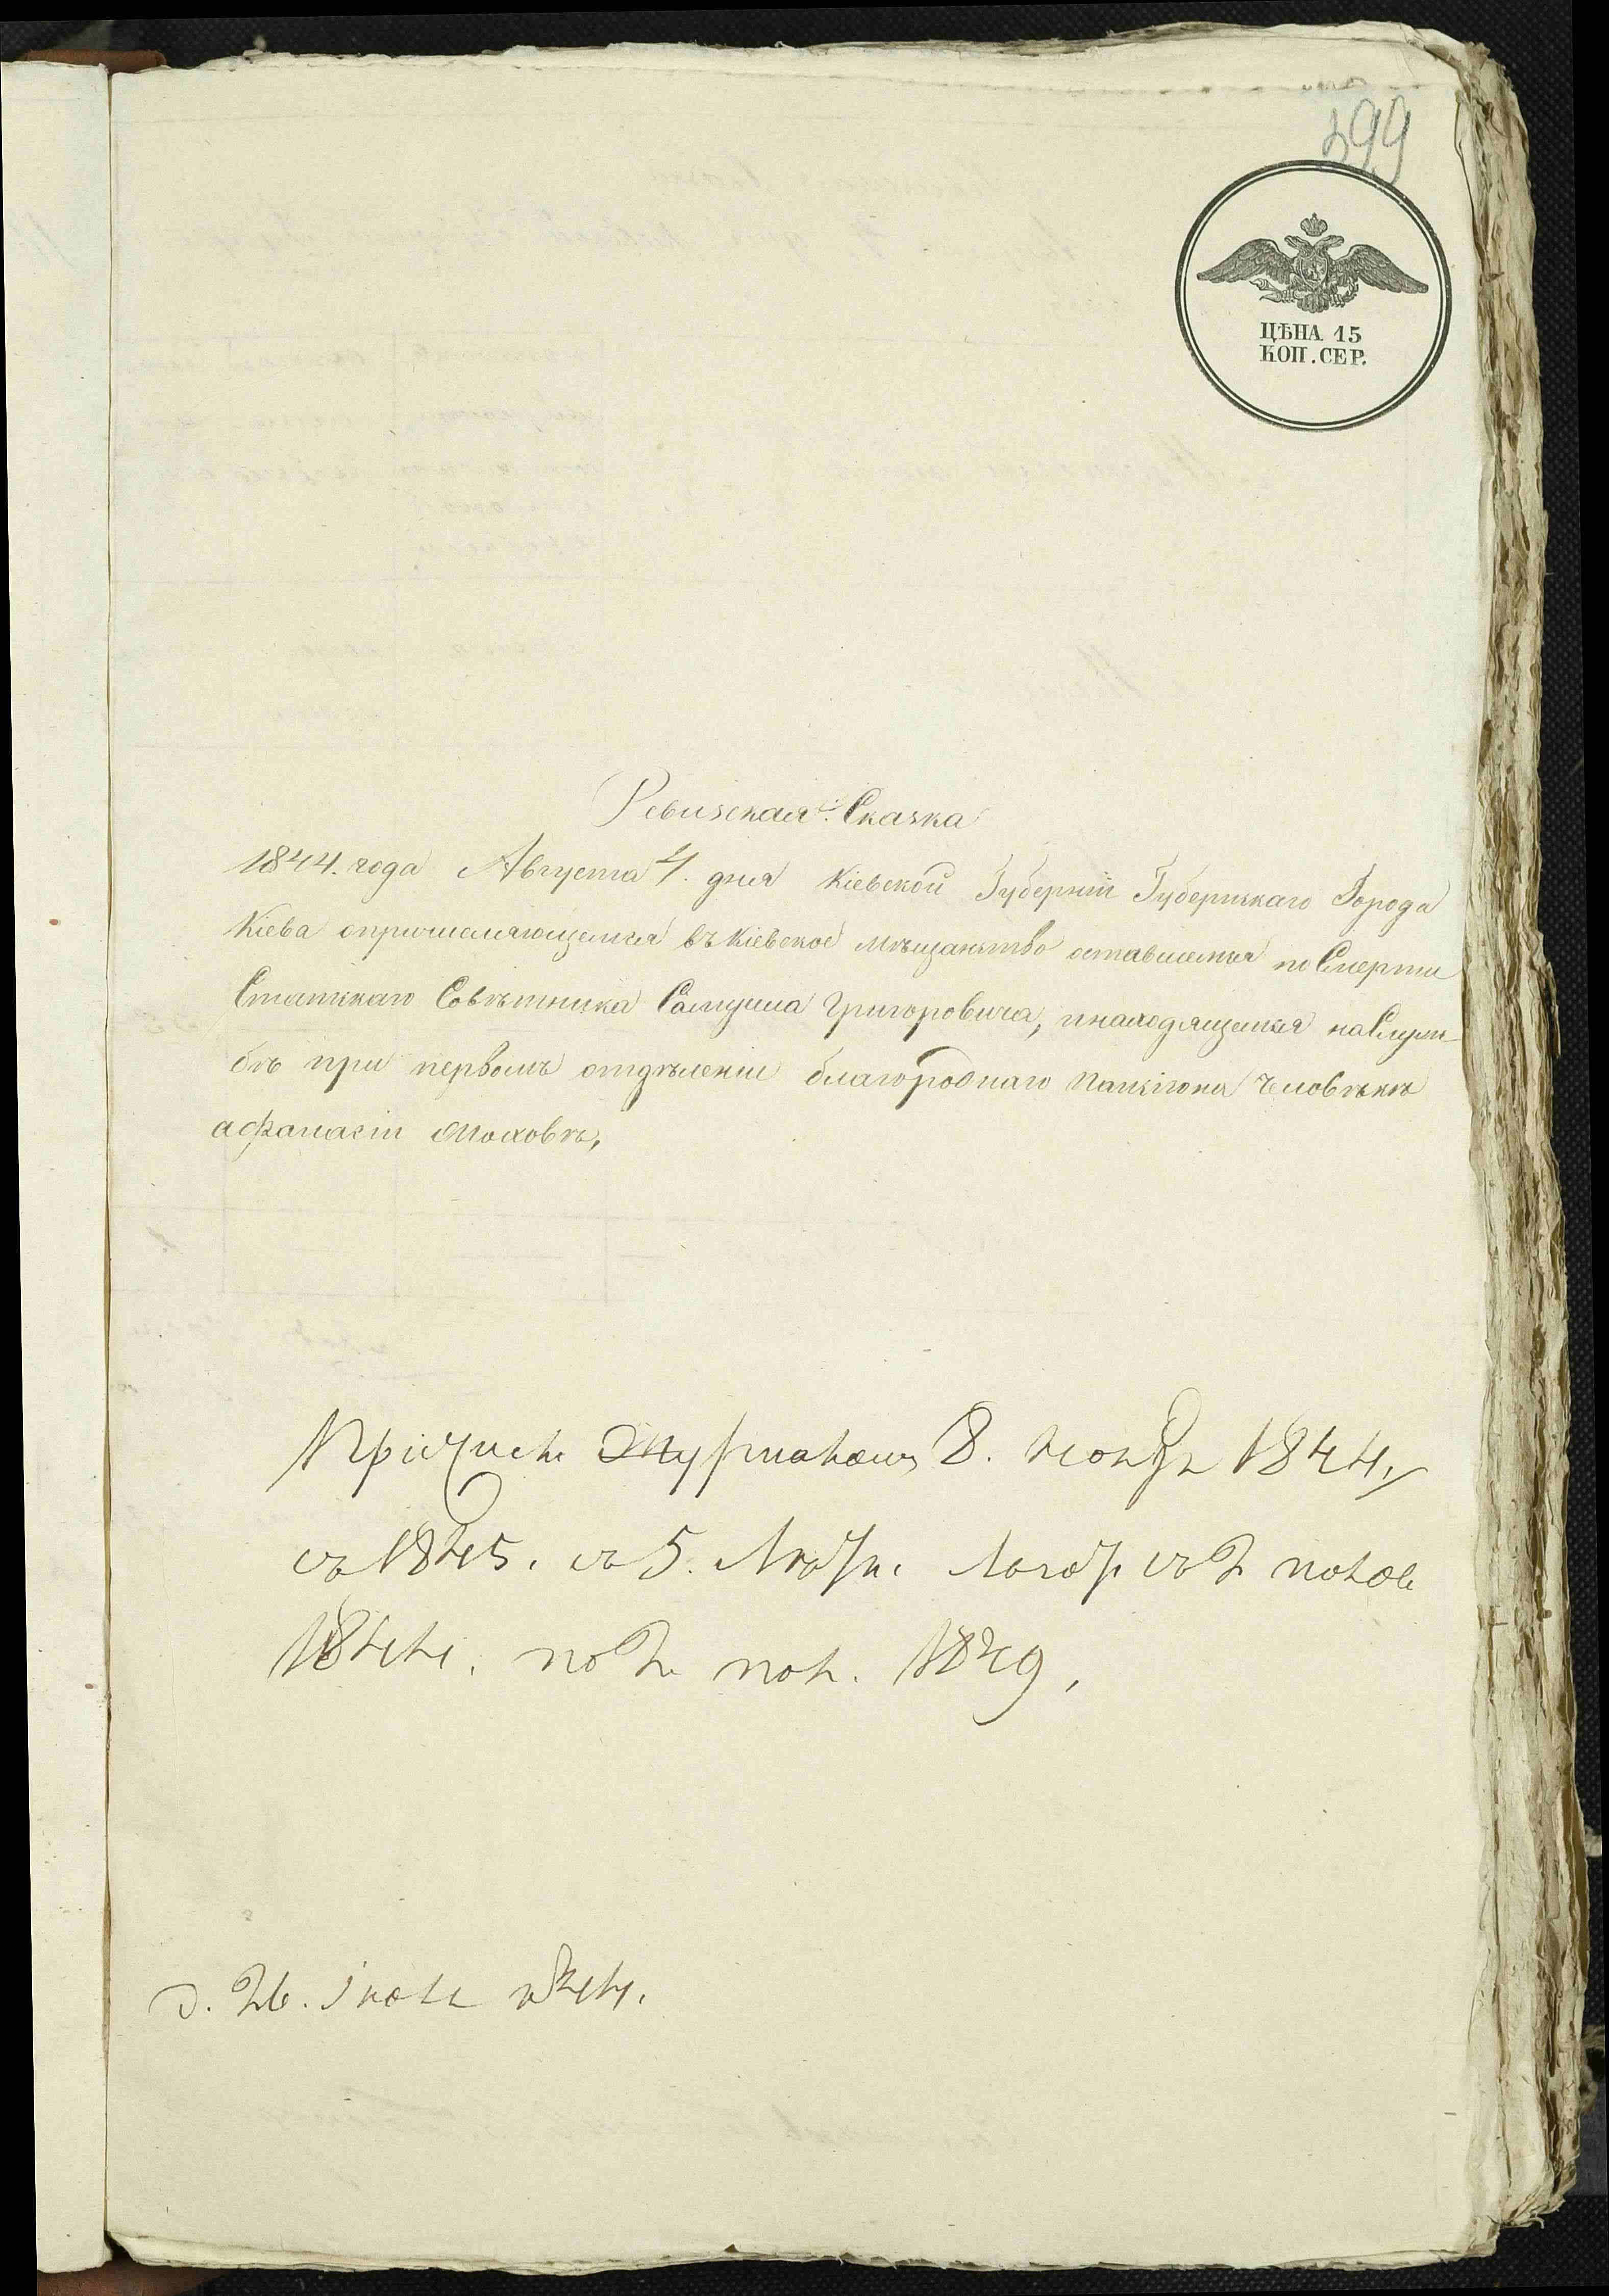 399
ЦѢНА 15
КОП. СЕР.
Ревизская Сказка
1844. года Августа 4. дня Кіевской Губерніи Губернскаго Города
Кіева опричисляющемся въ Кіевское мѣщанство оставшемся по Смерти
Статскаго Совѣтника Самуила Григоровича, инаходящемся на Служ-
бѣ при первомъ отдѣленіи благороднаго Пансіона Человѣкѣ
афанасіи
8. 1844,
съ 1845. съ 5. съ 2 полов
1844. по 2 пол. 1849,